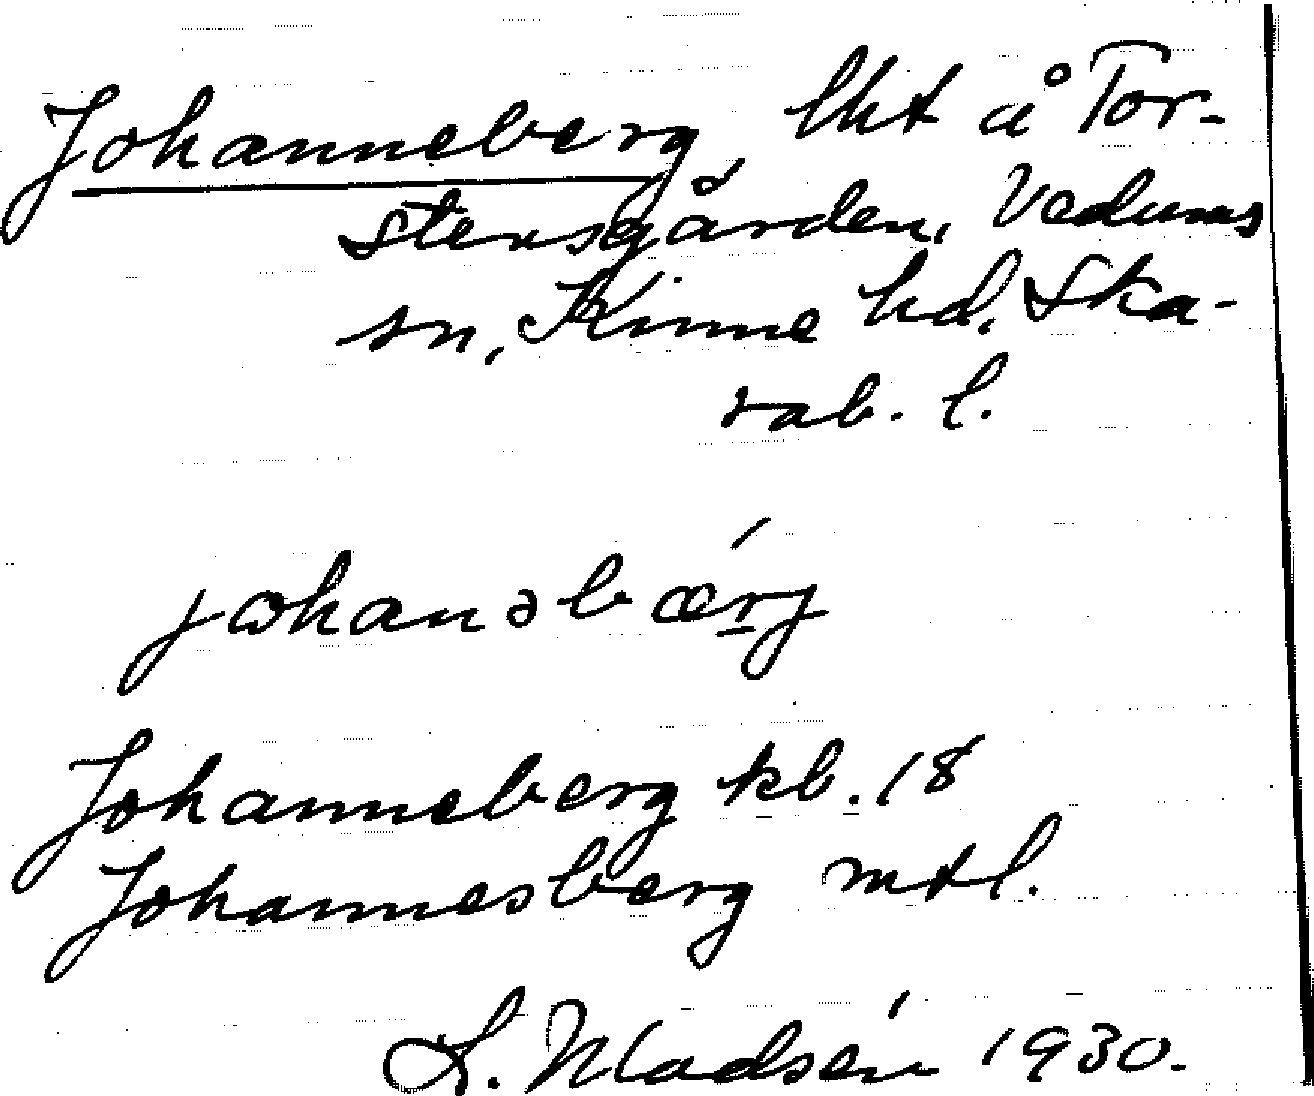 Johanneberg, lht å Tor-
stensgården, Vedums
sn, Kinne hd, Ska-
rab. l.
jωhanəbærj
Johanneberg kb. 18
Johannesberg mtl.
L. Madsén 1930.